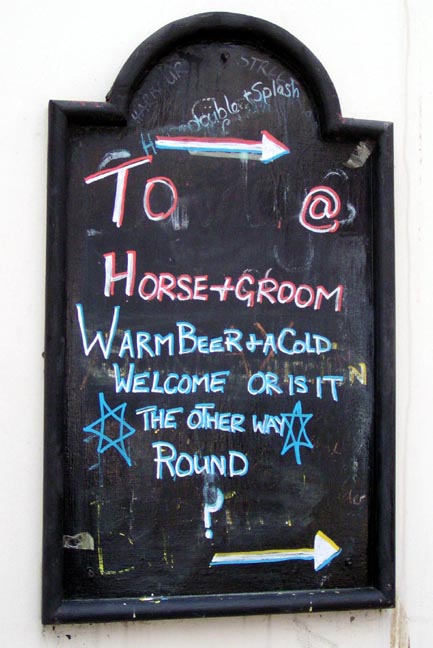 HARBOUR STREET
double + Splash
To @
HORSE + GROOM
WARM BEER + A COLD
WELCOME OR IS IT
THE OTHER WAY
ROUND
?